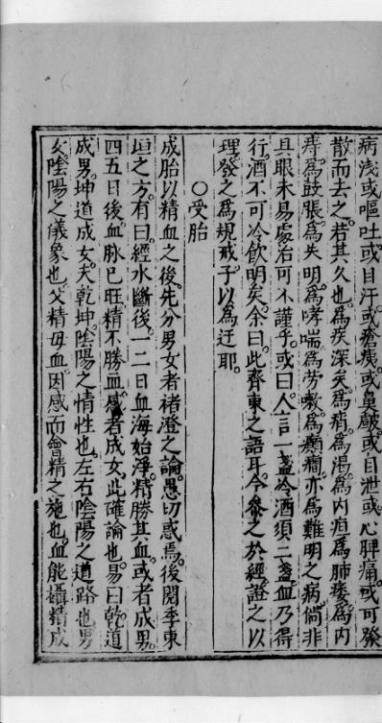 病淺或嘔吐或自汗或瘡痍或鼻衄或自泄或心脾痛或可發
散而去之若其久也為疾深矣為消為渴為內疽為肺痿為內
痔為鼓脹為失明為哮喘為勞嗽為癲癇亦為難明之病倘非
具眼未易處治可不謹乎或曰人言一盞冷酒須二盞血乃得
行酒不可冷飲明矣余曰此齊東之語耳今參之於經證之以
理發之為規戒子以為迂耶
○受胎
成胎以精血之後先分男女者褚澄之論愚切惑焉後閱李東
垣之方有曰經水斷後一二日血海始淨精勝其血或者成男
四五日後血脉已旺精不勝血感者成女此確論也易曰乾道
成男坤道成女夫乾坤陰陽之情性也左右陰陽之道路也男
女陰陽之儀象也父精母血因感而會精之施也血能攝精成